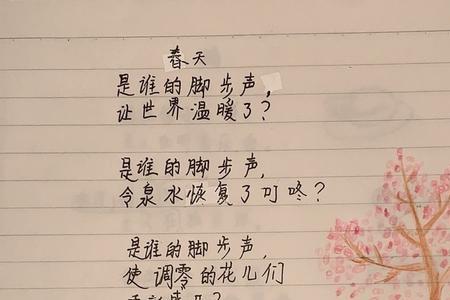 春天
是谁的脚步声，
让世界温暖了？
是谁的脚步声，
令泉水恢复了叮咚？
是谁的脚步声，
使调零的花儿们